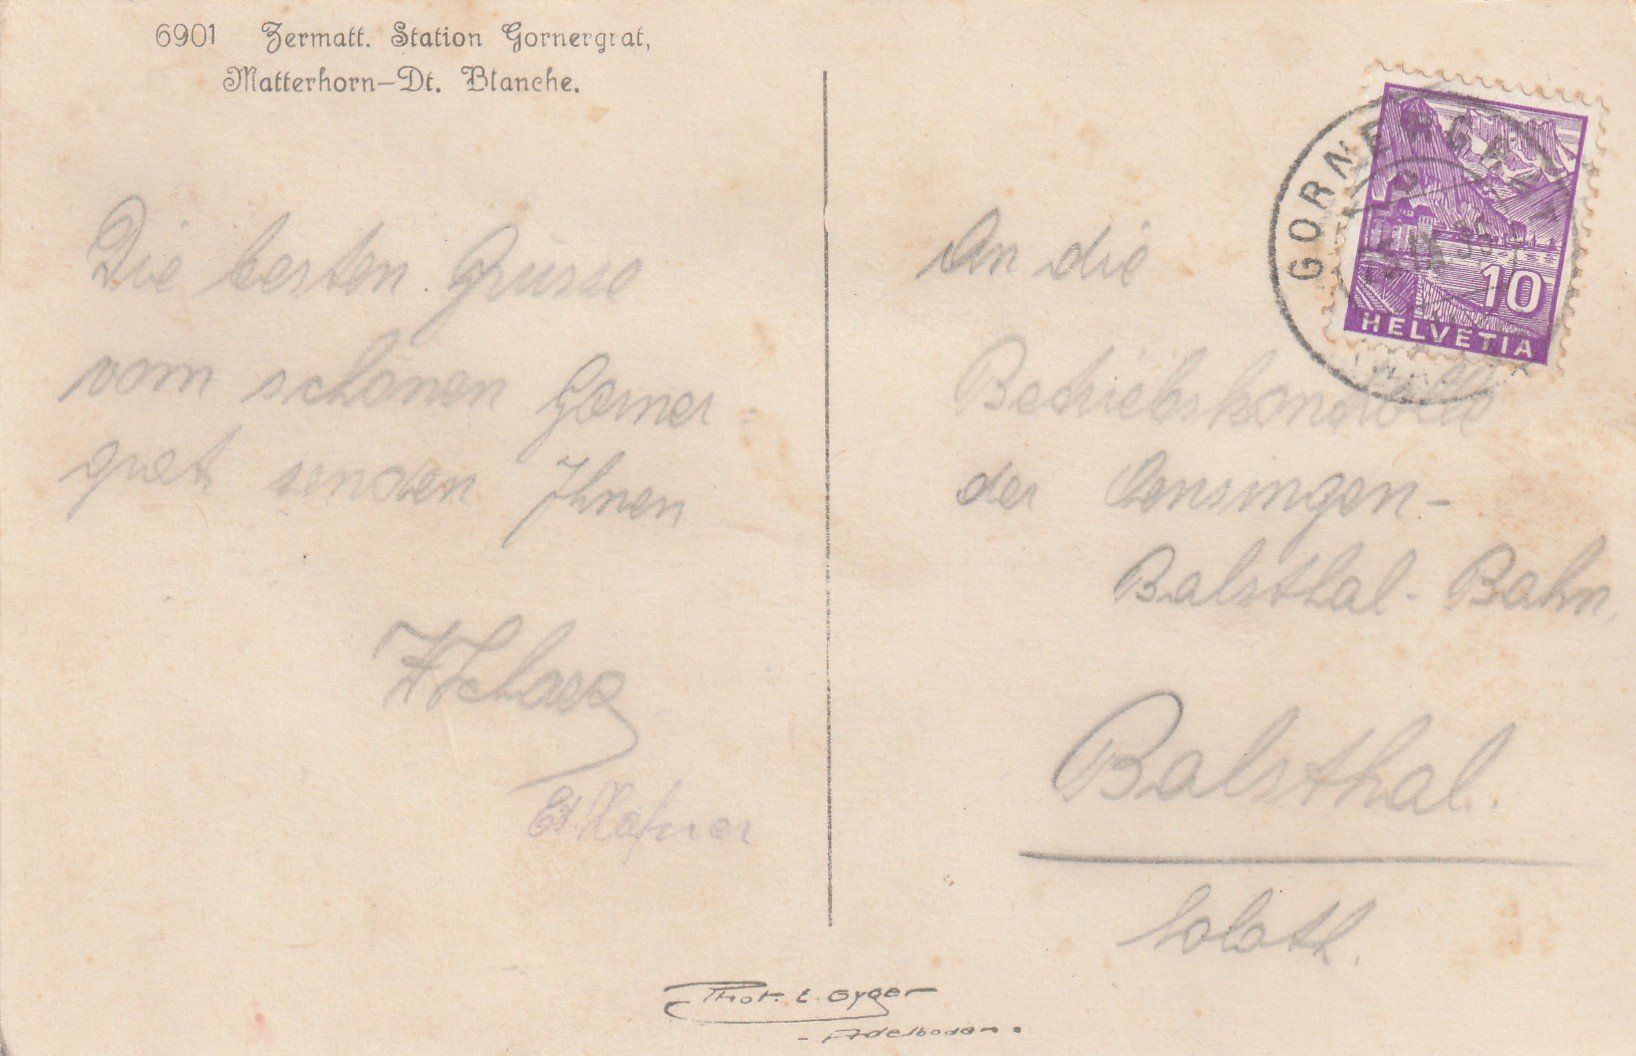 6901 Zermatt. Station Gornergrat,
Matterhorn–Dt. Blanche.
Die besten Grüsse
vom schönen Gorner=
grat senden Ihnen
Hafner
An die
Betriebskontrolle
der Oensingen-
Balsthal-Bahn,
Balsthal.
Soloth.
GORNERGRAT
IX 35
10
HELVETIA
Phot. E. Gyger
-Adelboden.